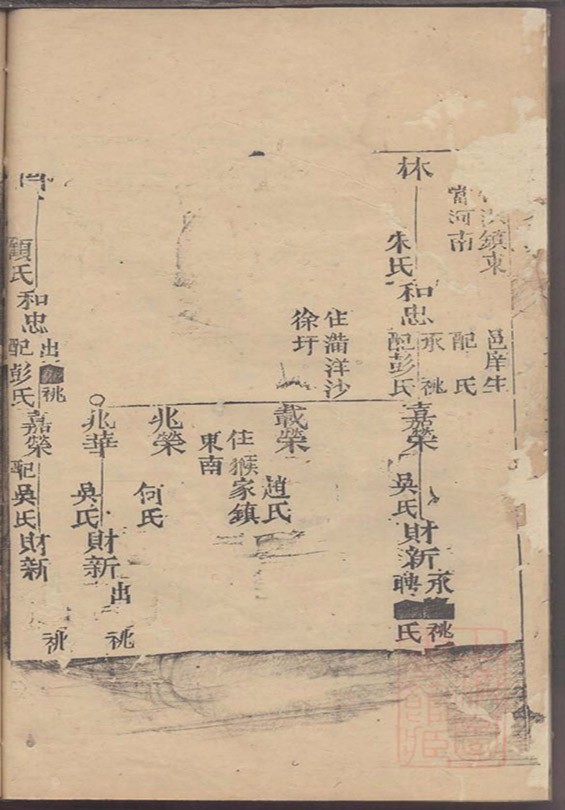 鎮東
河南
邑庠生
配氏
林
朱氏
和忠
承祧
配彭氏
嘉榮
吳氏
財新
承祧
聘
氏
住滿洋沙
徐圩
載榮
趙氏
住猴家鎮
東南
兆榮
何氏
兆華
吳氏
財新
出
祧
顧氏
和忠
出
祧
配彭氏
嘉榮
配吳氏
財新
祧